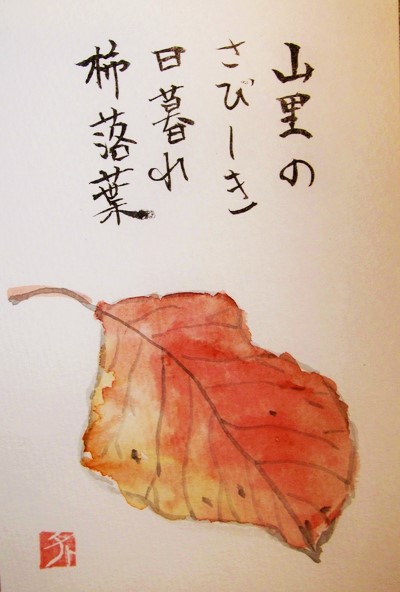 山里の
さびしき
日暮れ
柿落葉